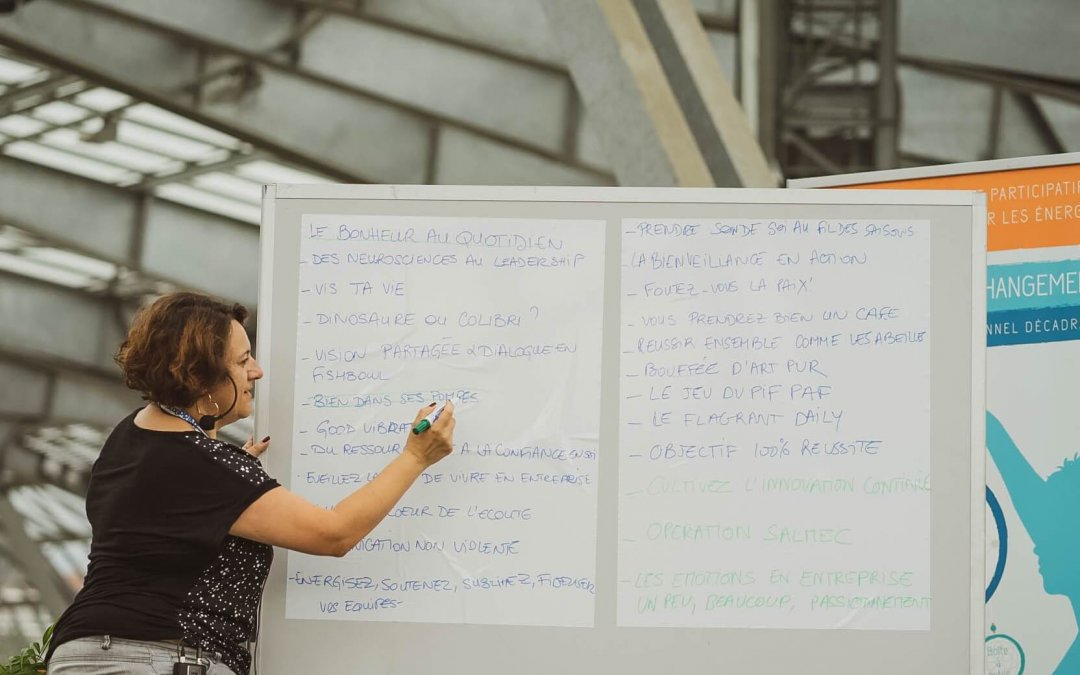 LE BONHEUR AU QUOTIDIEN
- DES NEUROSCIENCES AU LEADERSHIP
- VIS TA VIE
- DINOSAURE OU COLIBRI ?
- VISION PARTAGÉE & DIALOGUE EN
FISHBOWL
- BIEN DANS SES POMPES
- GOOD
- DU A LA CONFIANCE EN SOI
DE VIVRE EN ENTREPRISE
DE L'ECOUTE
NON VIOLENTE
- ENERGISEZ, SOUTENEZ, SUBLIMEZ, FIDELISEZ
VOS EQUIPES-
- PRENDRE SOIN DE SOI AU FIL DES SAISONS
- LA BIENVEILLANCE EN ACTION
- FOUTEZ-VOUS LA PAIX!
- VOUS PRENDREZ BIEN UN CAFE
- REUSSIR ENSEMBLE COMME LES ABEILLES
- BOUFFÉE D'ART PUR
- LE JEU DU PIF PAF
- LE FLAGRANT DAILY
- OBJECTIF 100% REUSSITE
- CULTIVEZ L'INNOVATION CONTINUE
- OPERATION
- LES EMOTIONS EN ENTREPRISE
UN PEU, BEAUCOUP, PASSIONNEMENT
PARTICIPATI
R LES ÉNERG
HANGEME
NNEL DÉCADR
Boîte
à